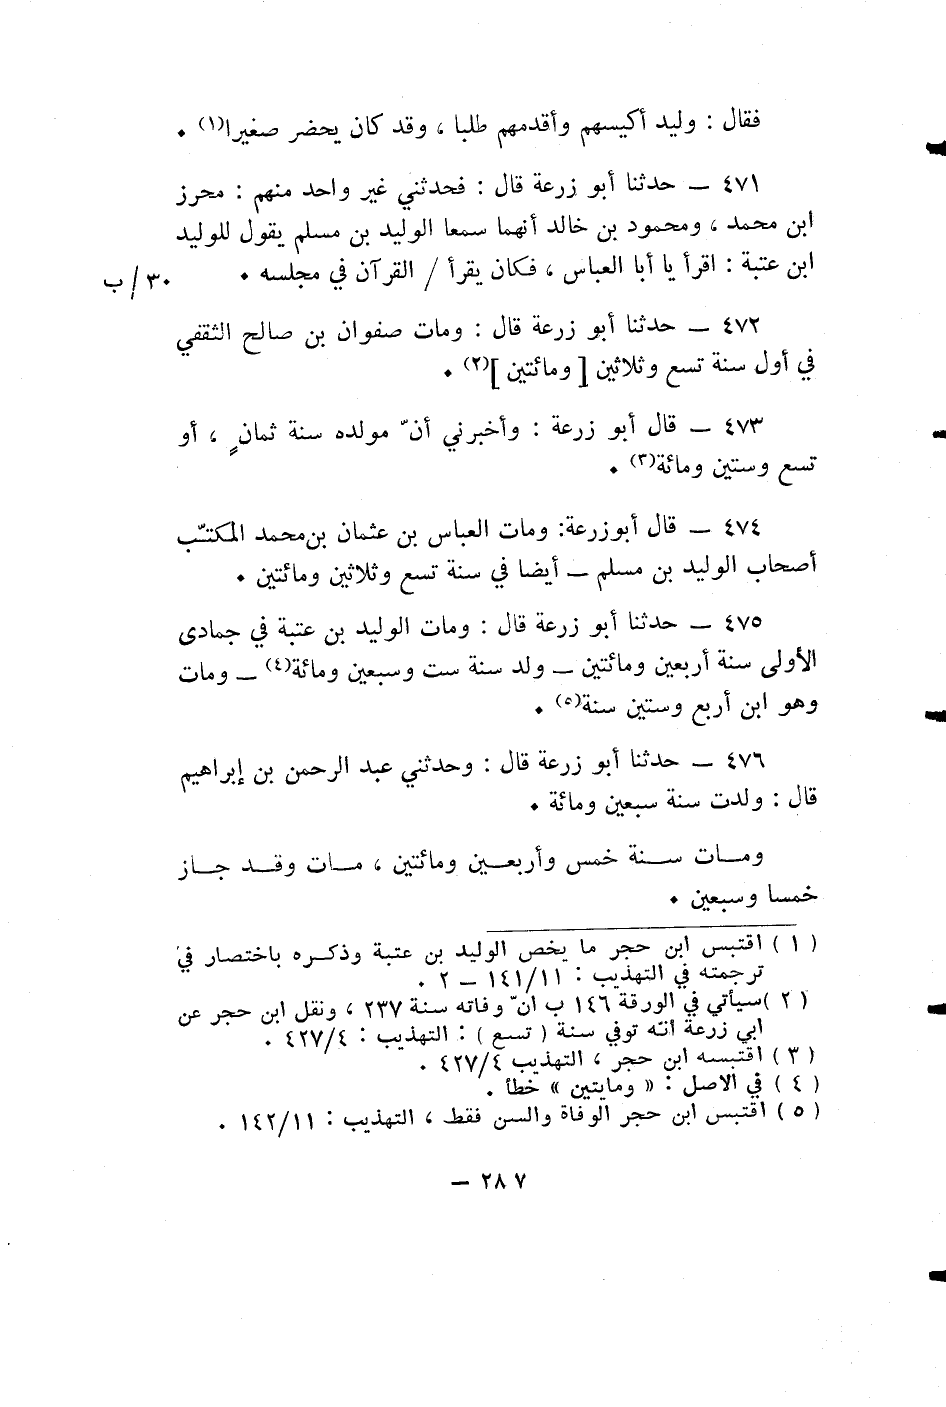 فقال : وليد أكيسهم وأقدمهم طلبا ، وقد كان يحضر صغيرا(١) .
٤٧١ – حدثنا أبو زرعة قال : فحدثني غير واحد منهم : محرز
ابن محمد ، ومحمود بن خالد أنهما سمعا الوليد بن مسلم يقول للوليد
ابن عتبة : اقرأ يا أبا العباس ، فكان يقرأ / القرآن في مجلسه . ٣٠/ب
٤٧٢ – حدثنا أبو زرعة قال : ومات صفوان بن صالح الثقفي
في أول سنة تسع وثلاثين [ ومائتين ](٢) .
٤٧٣ – قال أبو زرعة : وأخبرني أنّ مولده سنة ثمانٍ ، أو
تسع وستين ومائة(٣) .
٤٧٤ – قال أبوزرعة: ومات العباس بن عثمان بن محمد المكتّب
أصحاب الوليد بن مسلم – أيضا في سنة تسع وثلاثين ومائتين .
٤٧٥ – حدثنا أبو زرعة قال : ومات الوليد بن عتبة في جمادى
الأولى سنة أربعين ومائتين – ولد سنة ست وسبعين ومائة(٤) – ومات
وهو ابن أربع وستين سنة(٥) .
٤٧٦ – حدثنا أبو زرعة قال : وحدثني عبد الرحمن بن إبراهيم
قال : ولدت سنة سبعين ومائة .
ومات سنة خمس وأربعين ومائتين ، مات وقد جاز
خمسا وسبعين .
( ١ ) اقتبس ابن حجر ما يخص الوليد بن عتبة وذكره باختصار في
ترجمته في التهذيب : ١٤١/١١ – ٢ .
( ٢ ) سيأتي في الورقة ١٤٦ ب انّ وفاته سنة ٢٣٧ ، ونقل ابن حجر عن
ابي زرعة انه توفي سنة ( تسع ) : التهذيب : ٤٢٧/٤ .
( ٣ ) اقتبسه ابن حجر ، التهذيب ٤٢٧/٤ .
( ٤ ) في الاصل : « ومايتين » خطأ .
( ٥ ) اقتبس ابن حجر الوفاة والسن فقط ، التهذيب : ١٤٢/١١ .
٢٨٧ –